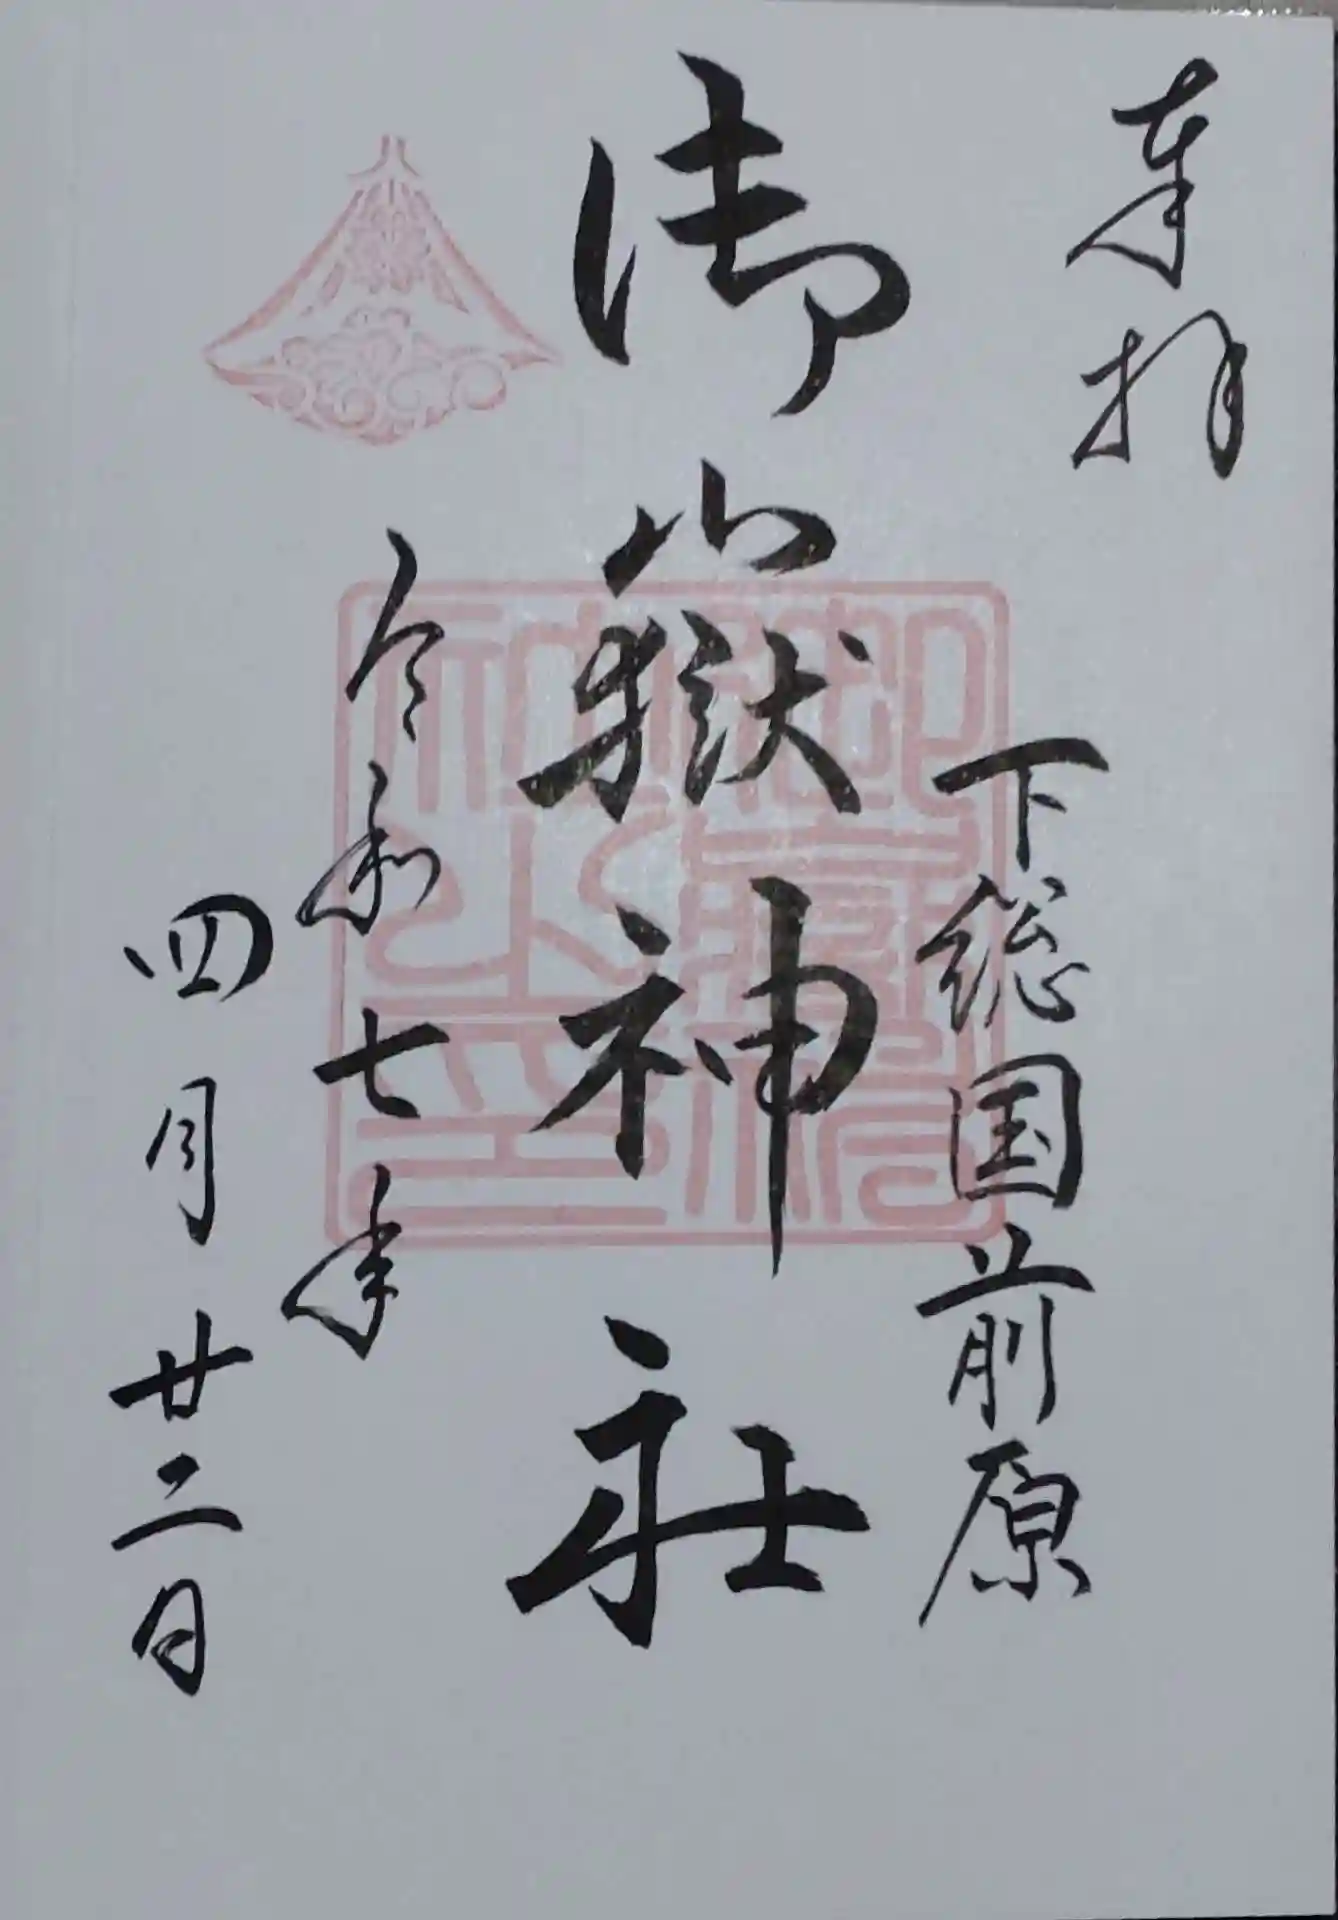 奉拝
下総国前原
御嶽神社
令和七年
四月廿二日
御嶽神社之印